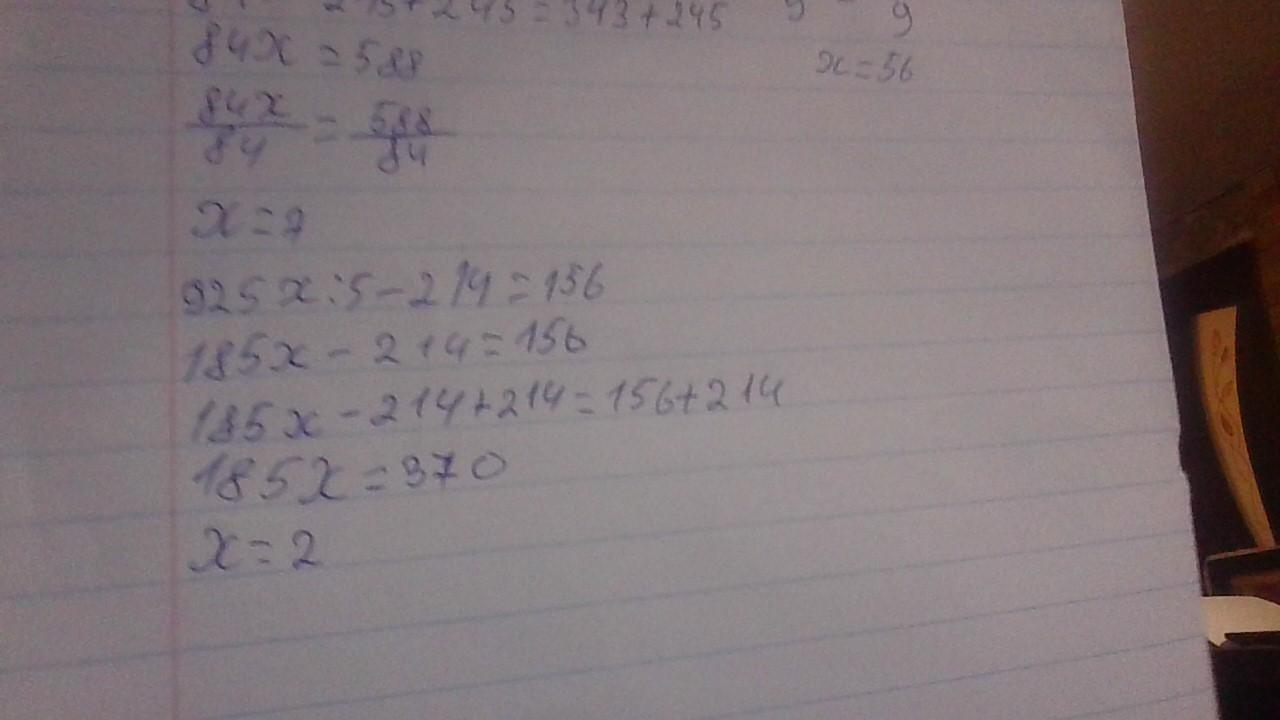 245+245=343+245
84x=588
84x/84=588/84
x=7
925x:5-214=156
185x-214=156
185x-214+214=156+214
185x=370
x=2
9 9
x=56